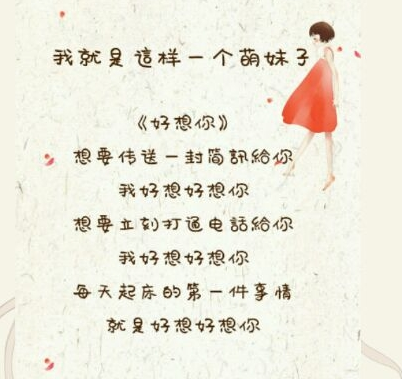 我就是這样一个萌妹子
《好想你》
想要传送一封简訊給你
我好想好想你
想要立刻打通电話給你
我好想好想你
每天起床的第一件事情
就是好想好想你